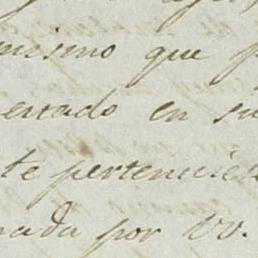 mismo que p
ertado en su
te pertenecien
nada por VV.